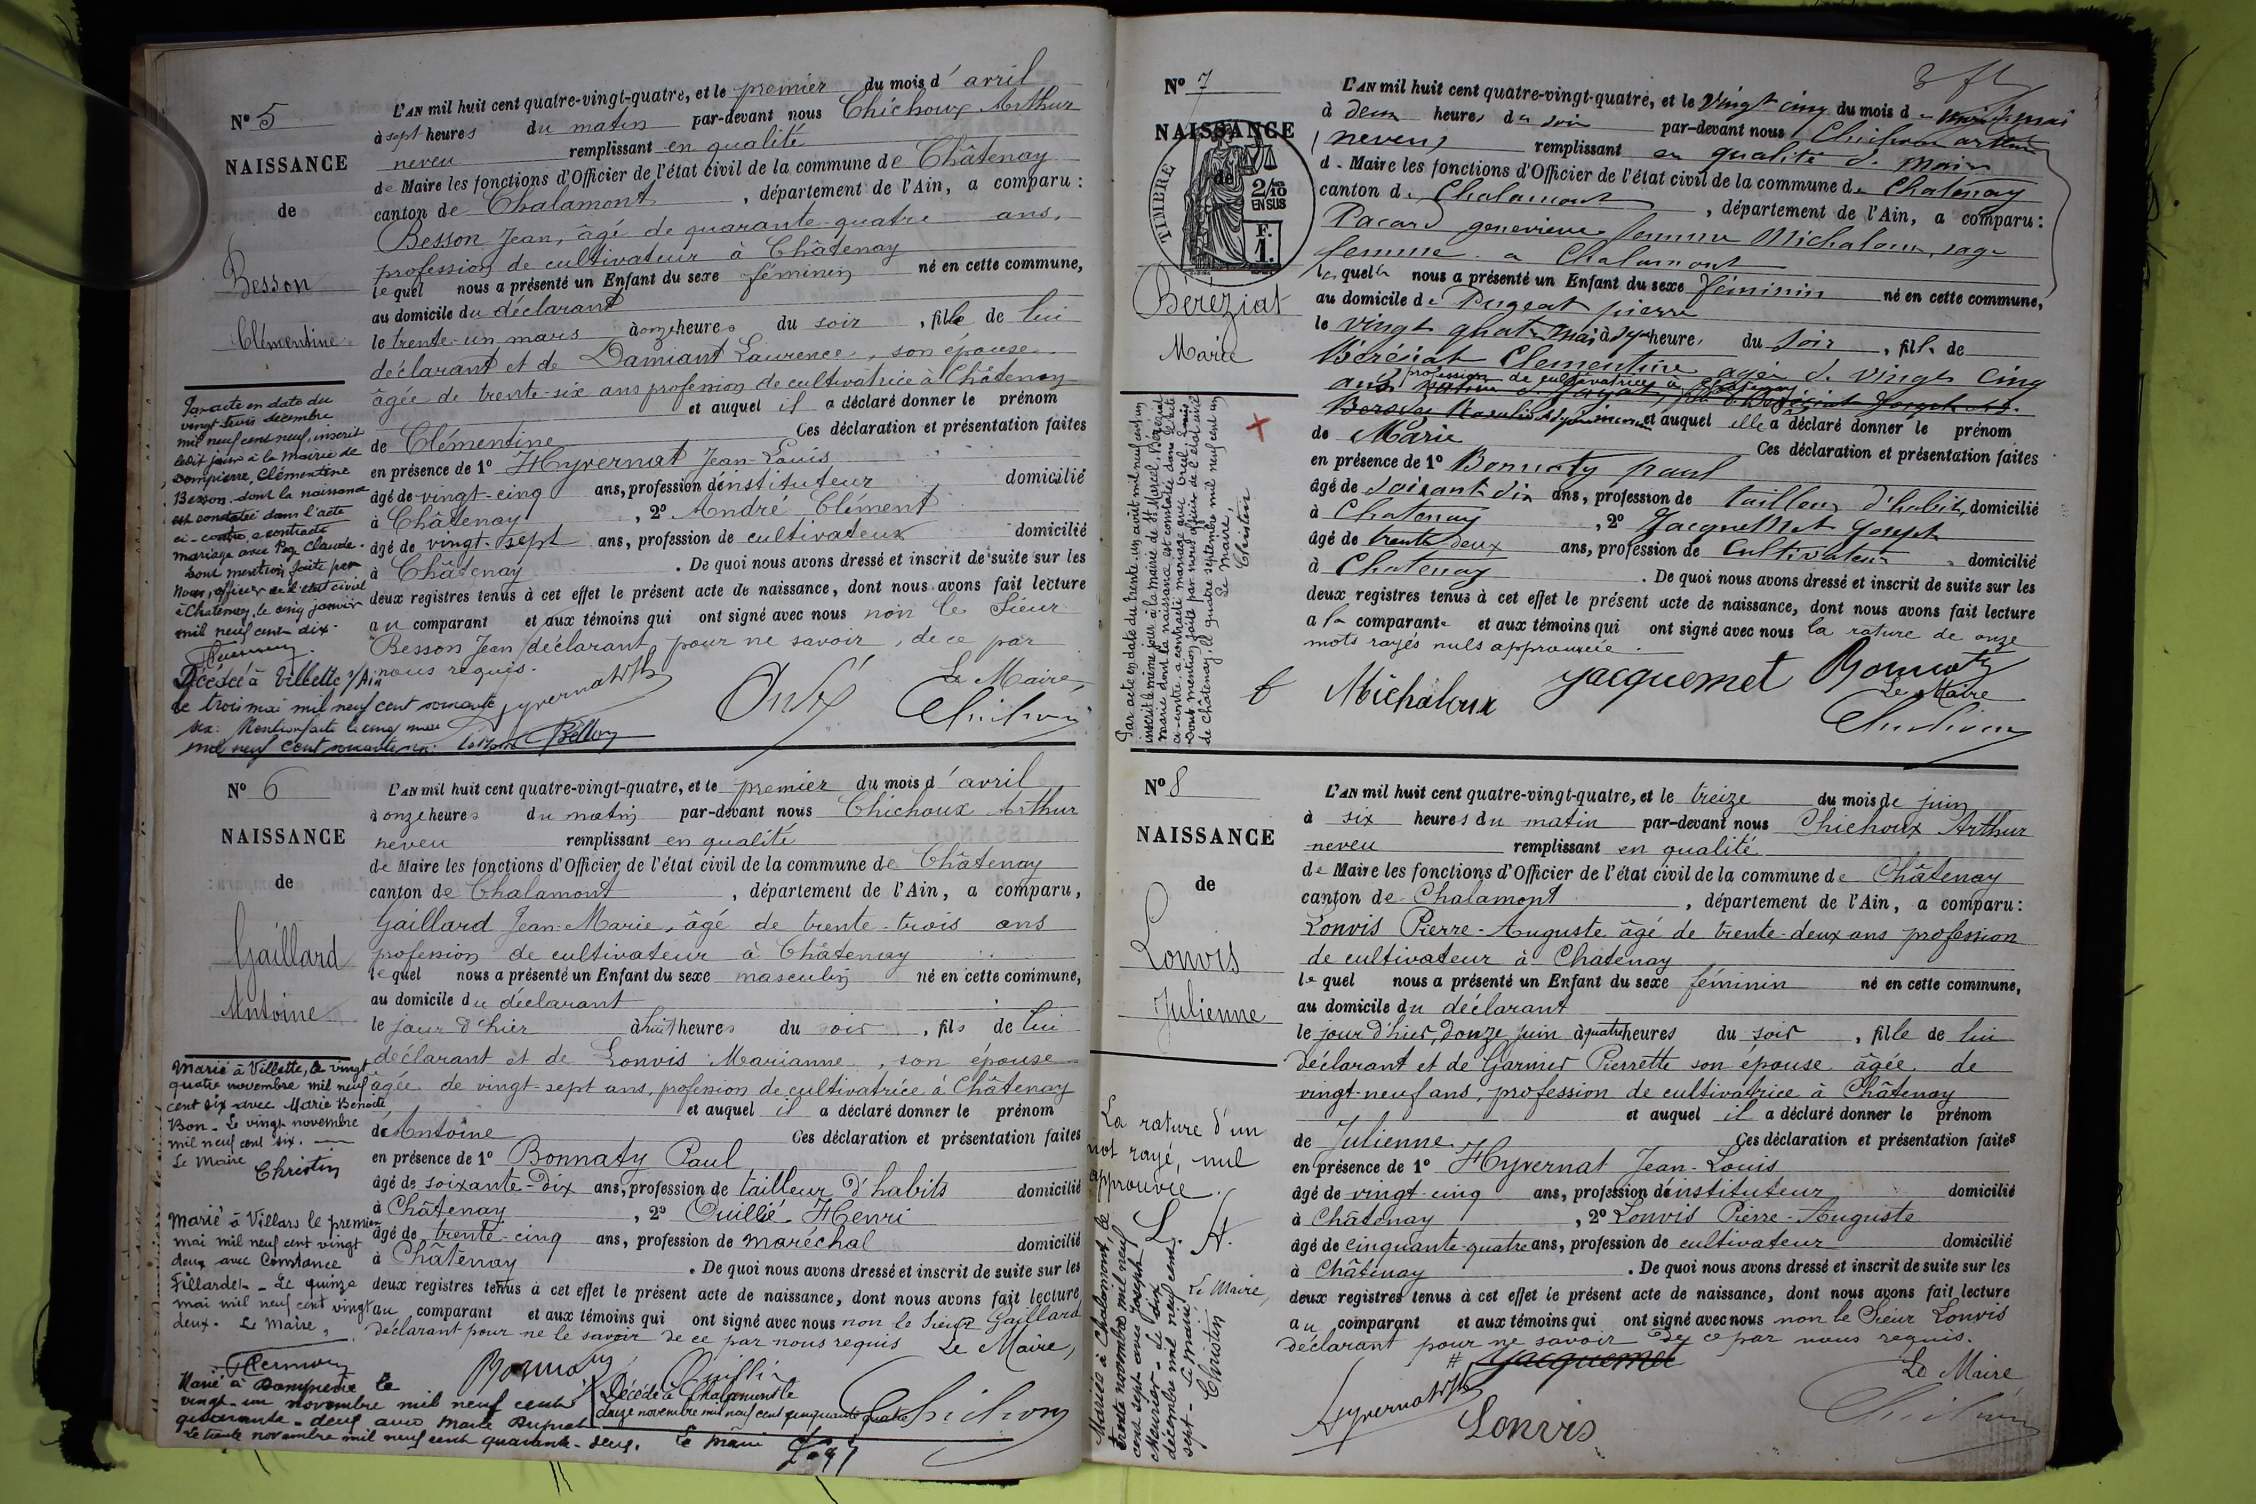 N° 5
NAISSANCE
de
Besson
Clémentine
Par acte en date du
vingt trois décembre
mil neuf cent neuf, inscrit
ledit jour à la mairie de
Dompierre, Clémentine
Besson dont la naissance
est constatée dans l'acte
ci-contre, a contracté
mariage avec Claude.
Dont mention faite par
Nous, officier de l'état civil
à Chatenay, le cinq janvier
mil neuf cent dix.
Décédée à Villette s/Ain
le trois mai mil neuf cent soixante
six. Mention faite le cinq mai
mil neuf cent soixante six.
L'AN mil huit cent quatre-vingt-quatre, et le premier du mois d'avril
à sept heures du matin par-devant nous Chichoux Arthur
neveu remplissant en qualité
de Maire les fonctions d'Officier de l'état civil de la commune de Châtenay
canton de Chalamont, département de l'Ain, a comparu :
Besson Jean, âgé de quarante-quatre ans,
profession de cultivateur à Châtenay
lequel nous a présenté un Enfant du sexe féminin né en cette commune,
au domicile du déclarant
le trente-un mars à onze heures du soir, fille de lui
déclarant et de Damiant Laurence, son épouse
âgée de trente-six ans profession de cultivatrice à Châtenay
et auquel il a déclaré donner le prénom
de Clémentine Ces déclaration et présentation faites
en présence de 1° Hyvernat Jean-Louis
âgé de vingt-cinq ans, profession d'instituteur domicilié
à Châtenay, 2° André Clément
âgé de vingt-sept ans, profession de cultivateur domicilié
à Châtenay. De quoi nous avons dressé et inscrit de suite sur les
deux registres tenus à cet effet le présent acte de naissance, dont nous avons fait lecture
au comparant et aux témoins qui ont signé avec nous non le Sieur
Besson Jean déclarant pour ne savoir, de ce par
nous requis. Le Maire,
Hyvernat Chichoux
N° 6
NAISSANCE
de
Gaillard
Antoine
Marié à Villette, le vingt
quatre novembre mil neuf
cent six avec Marie Benoite
Bon - Le vingt novembre
mil neuf cent six.
Le Maire
Christin
Marié à Villars le premier
mai mil neuf cent vingt
deux avec Constance
Fillardet - Le quinze
mai mil neuf cent vingt
deux. Le Maire,
Marié à Dompierre le
vingt-un novembre mil neuf cent
quarante-deux avec Marie Dupnat
Le trente novembre mil neuf cent quarante-deux. Le Maire
L'AN mil huit cent quatre-vingt-quatre, et le premier du mois d'avril
à onze heures du matin par-devant nous Chichoux Arthur
neveu remplissant en qualité
de Maire les fonctions d'Officier de l'état civil de la commune de Châtenay
canton de Chalamont, département de l'Ain, a comparu,
Gaillard Jean-Marie, âgé de trente-trois ans
profession de cultivateur à Châtenay
lequel nous a présenté un Enfant du sexe masculin né en cette commune,
au domicile du déclarant
le jour d'hier à huit heures du soir, fils de lui
déclarant et de Lonvis Marianne, son épouse
âgée de vingt-sept ans, profession de cultivatrice à Châtenay
et auquel il a déclaré donner le prénom
de Antoine Ces déclaration et présentation faites
en présence de 1° Bonnaty Paul
âgé de soixante-dix ans, profession de tailleur d'habits domicilié
à Châtenay, 2° Ouillié Henri
âgé de trente-cinq ans, profession de maréchal domicilié
à Châtenay. De quoi nous avons dressé et inscrit de suite sur les
deux registres tenus à cet effet le présent acte de naissance, dont nous avons fait lecture
au comparant et aux témoins qui ont signé avec nous non le Sieur Gaillard
déclarant pour ne le savoir de ce par nous requis Le Maire,
Bonnaty Chichoux
Décédé à Chalamont le
douze novembre mil neuf cent cinquante quatre
N° 7
NAISSANCE
de
TIMBRE
2/10
EN SUS
F.
1.
Béréziat
Marie
Par acte en date du trente un août mil neuf cent un
inscrit le même jour à la mairie de St Marcel, Béréziat
Marie dont la naissance est constatée dans l'acte
ci-contre, a contracté mariage avec Louis
Dont mention faite par nous officier de l'état civil
de Châtenay, le quatre septembre mil neuf cent un
Le Maire,
Christin
L'AN mil huit cent quatre-vingt-quatre, et le vingt cinq du mois de mai
à deux heures du soir par-devant nous Chichoux arthur
neveu remplissant en qualité de maire
de Maire les fonctions d'Officier de l'état civil de la commune de Chatenay
canton de Chalamont, département de l'Ain, a comparu :
Pacard genevieve femme Michaloux, sage
femme a Chalamont
laquelle nous a présenté un Enfant du sexe féminin né en cette commune,
au domicile de Pugeat pierre
le vingt quatre mai à sept heures du soir, fille de
Béréziat Clementine agée de vingt cinq
ans profession de cultivatrice à Chatenay
et auquel elle a déclaré donner le prénom
de Marie Ces déclaration et présentation faites
en présence de 1° Bonnaty paul
âgé de soixant dix ans, profession de tailleur d'habits, domicilié
à Chatenay, 2° Jacquemet Joseph
âgé de trente deux ans, profession de Cultivateur domicilié
à Chatenay. De quoi nous avons dressé et inscrit de suite sur les
deux registres tenus à cet effet le présent acte de naissance, dont nous avons fait lecture
a la comparante et aux témoins qui ont signé avec nous la rature de onze
mots rayés nuls approuvée.
f Michaloux Jacquemet Bonnaty
Le Maire
Chichoux
N° 8
NAISSANCE
de
Lonvis
Julienne
La rature d'un
mot rayé, nul
approuvée.
L. H.
Mariée à Chalamont, le
trente novembre mil neuf
cent sept avec Joseph
Meunier - Le dix
décembre mil neuf cent
sept - Le Maire
Christin
Le Maire,
L'AN mil huit cent quatre-vingt-quatre, et le treize du mois de juin
à six heures du matin par-devant nous Chichoux Arthur
neveu remplissant en qualité
de Maire les fonctions d'Officier de l'état civil de la commune de Châtenay
canton de Chalamont, département de l'Ain, a comparu :
Lonvis Pierre-Auguste âgé de trente-deux ans profession
de cultivateur à Chatenay
lequel nous a présenté un Enfant du sexe féminin né en cette commune,
au domicile du déclarant
le jour d'hier, douze juin à quatre heures du soir, fille de lui
déclarant et de Garnier Pierrette son épouse âgée de
vingt-neuf ans, profession de cultivatrice à Châtenay
et auquel il a déclaré donner le prénom
de Julienne Ces déclaration et présentation faites
en présence de 1° Hyvernat Jean-Louis
âgé de vingt-cinq ans, profession d'instituteur domicilié
à Châtenay, 2° Lonvis Pierre-Auguste
âgé de cinquante-quatre ans, profession de cultivateur domicilié
à Châtenay. De quoi nous avons dressé et inscrit de suite sur les
deux registres tenus à cet effet le présent acte de naissance, dont nous avons fait lecture
au comparant et aux témoins qui ont signé avec nous non le Sieur Lonvis
déclarant pour ne savoir de ce par nous requis.
# Jacquemet Le Maire
Hyvernat Lonvis Chichoux